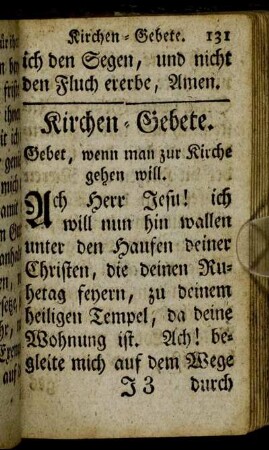 Kirchen-Gebete. 131
ich den Segen, und nicht
den Fluch ererbe, Amen.
Kirchen-Gebete.
Gebet, wenn man zur Kirche
gehen will.
Ach Herr Jesu! ich
will nun hin wallen
unter den Haufen deiner
Christen, die deinen Ru-
hetag feyern, zu deinem
heiligen Tempel, da deine
Wohnung ist. Ach! be-
gleite mich auf dem Wege
J 3 durch